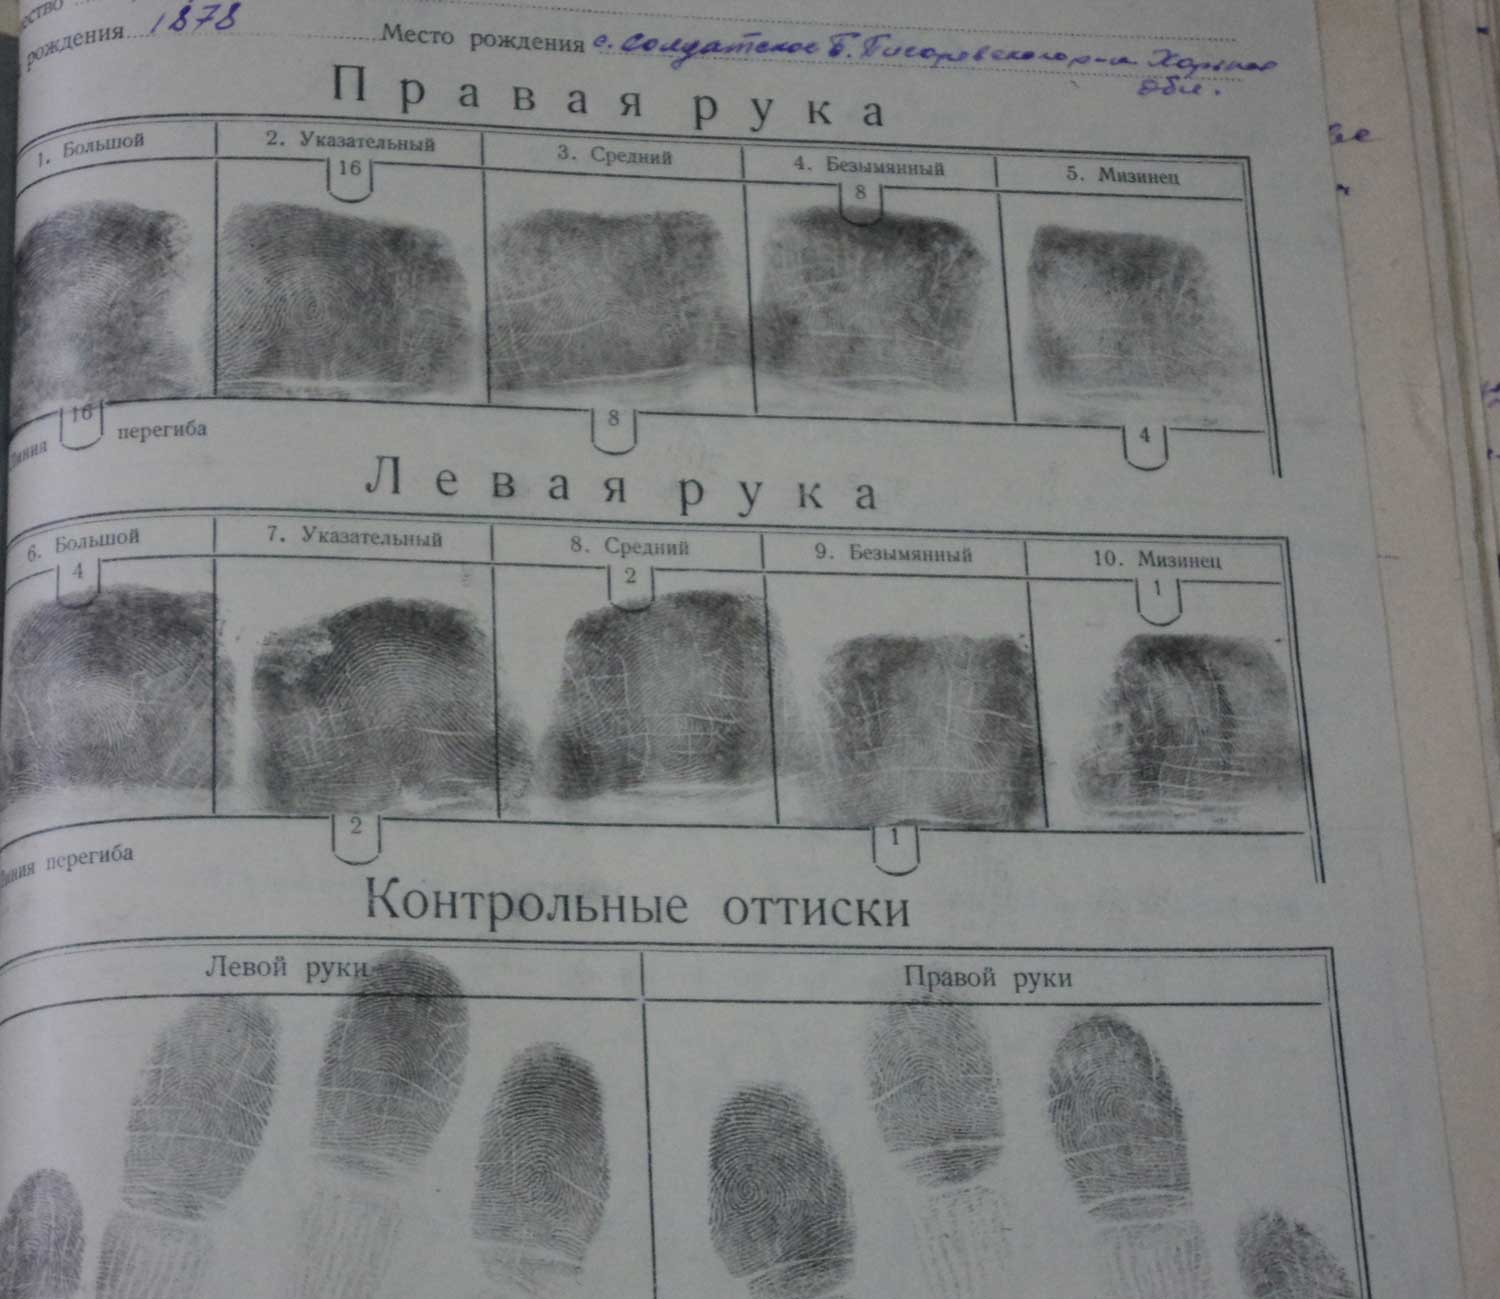 ество
рождения 1878 Место рождения с. Солдатское Б. Писаревского р-на Харьков
обл.
Правая рука
1. Большой 2. Указательный 3. Средний 4. Безымянный 5. Мизинец
16 8
16 8 4
Линия перегиба
Левая рука
6. Большой 7. Указательный 8. Средний 9. Безымянный 10. Мизинец
4 2 1
2 1
Линия перегиба
Контрольные оттиски
Левой руки Правой руки